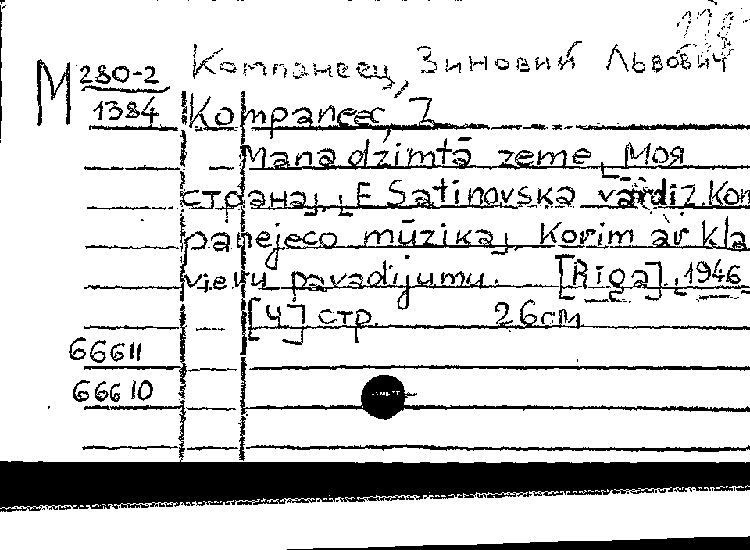 Компанеец, Зиновий Львович
М 280-2
1384
Kompaneec, Z
Mana dzimtā zeme, Моя
страна, E Satinovska vārdi Z. Kom
panejeco mūzika, Korim ar kla
vieru pavadijumu. [Riga], 1946
[4] стр. 26см
66611
66610